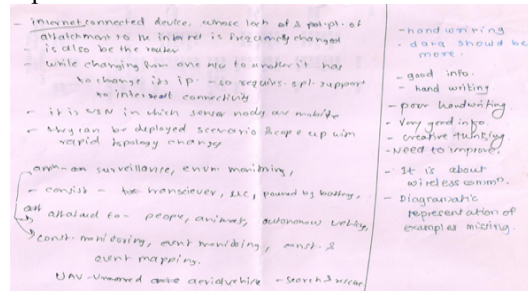 - internet connected device, whose loch of & pot. pt. of
attatchment to the internet is frequency changed
- is also be the router
- while changing from one n/w to another it has
to change its ip - so requires spl. support
to internet connectivity
- it is WSN in which sensor nodes are mobile
- they can be deployed scenario & cope up with
rapid topology changes
appln - surveillance, envm monitoring,
- consist - transciever, powered by battery,
attatched to - people, animals, autonomous vehicles,
const. monitoring, event monitoring, const. &
event mapping.
UAV - Unmanned aerial vehicle - search & rescue
- hand wriring
- data should be
more.
- good info.
- hand writing
- poor handwriting.
- Very good info.
- creative thinking.
- Need to improve.
- It is about
wireless commn.
- Diagramatic
representation of
examples missing.